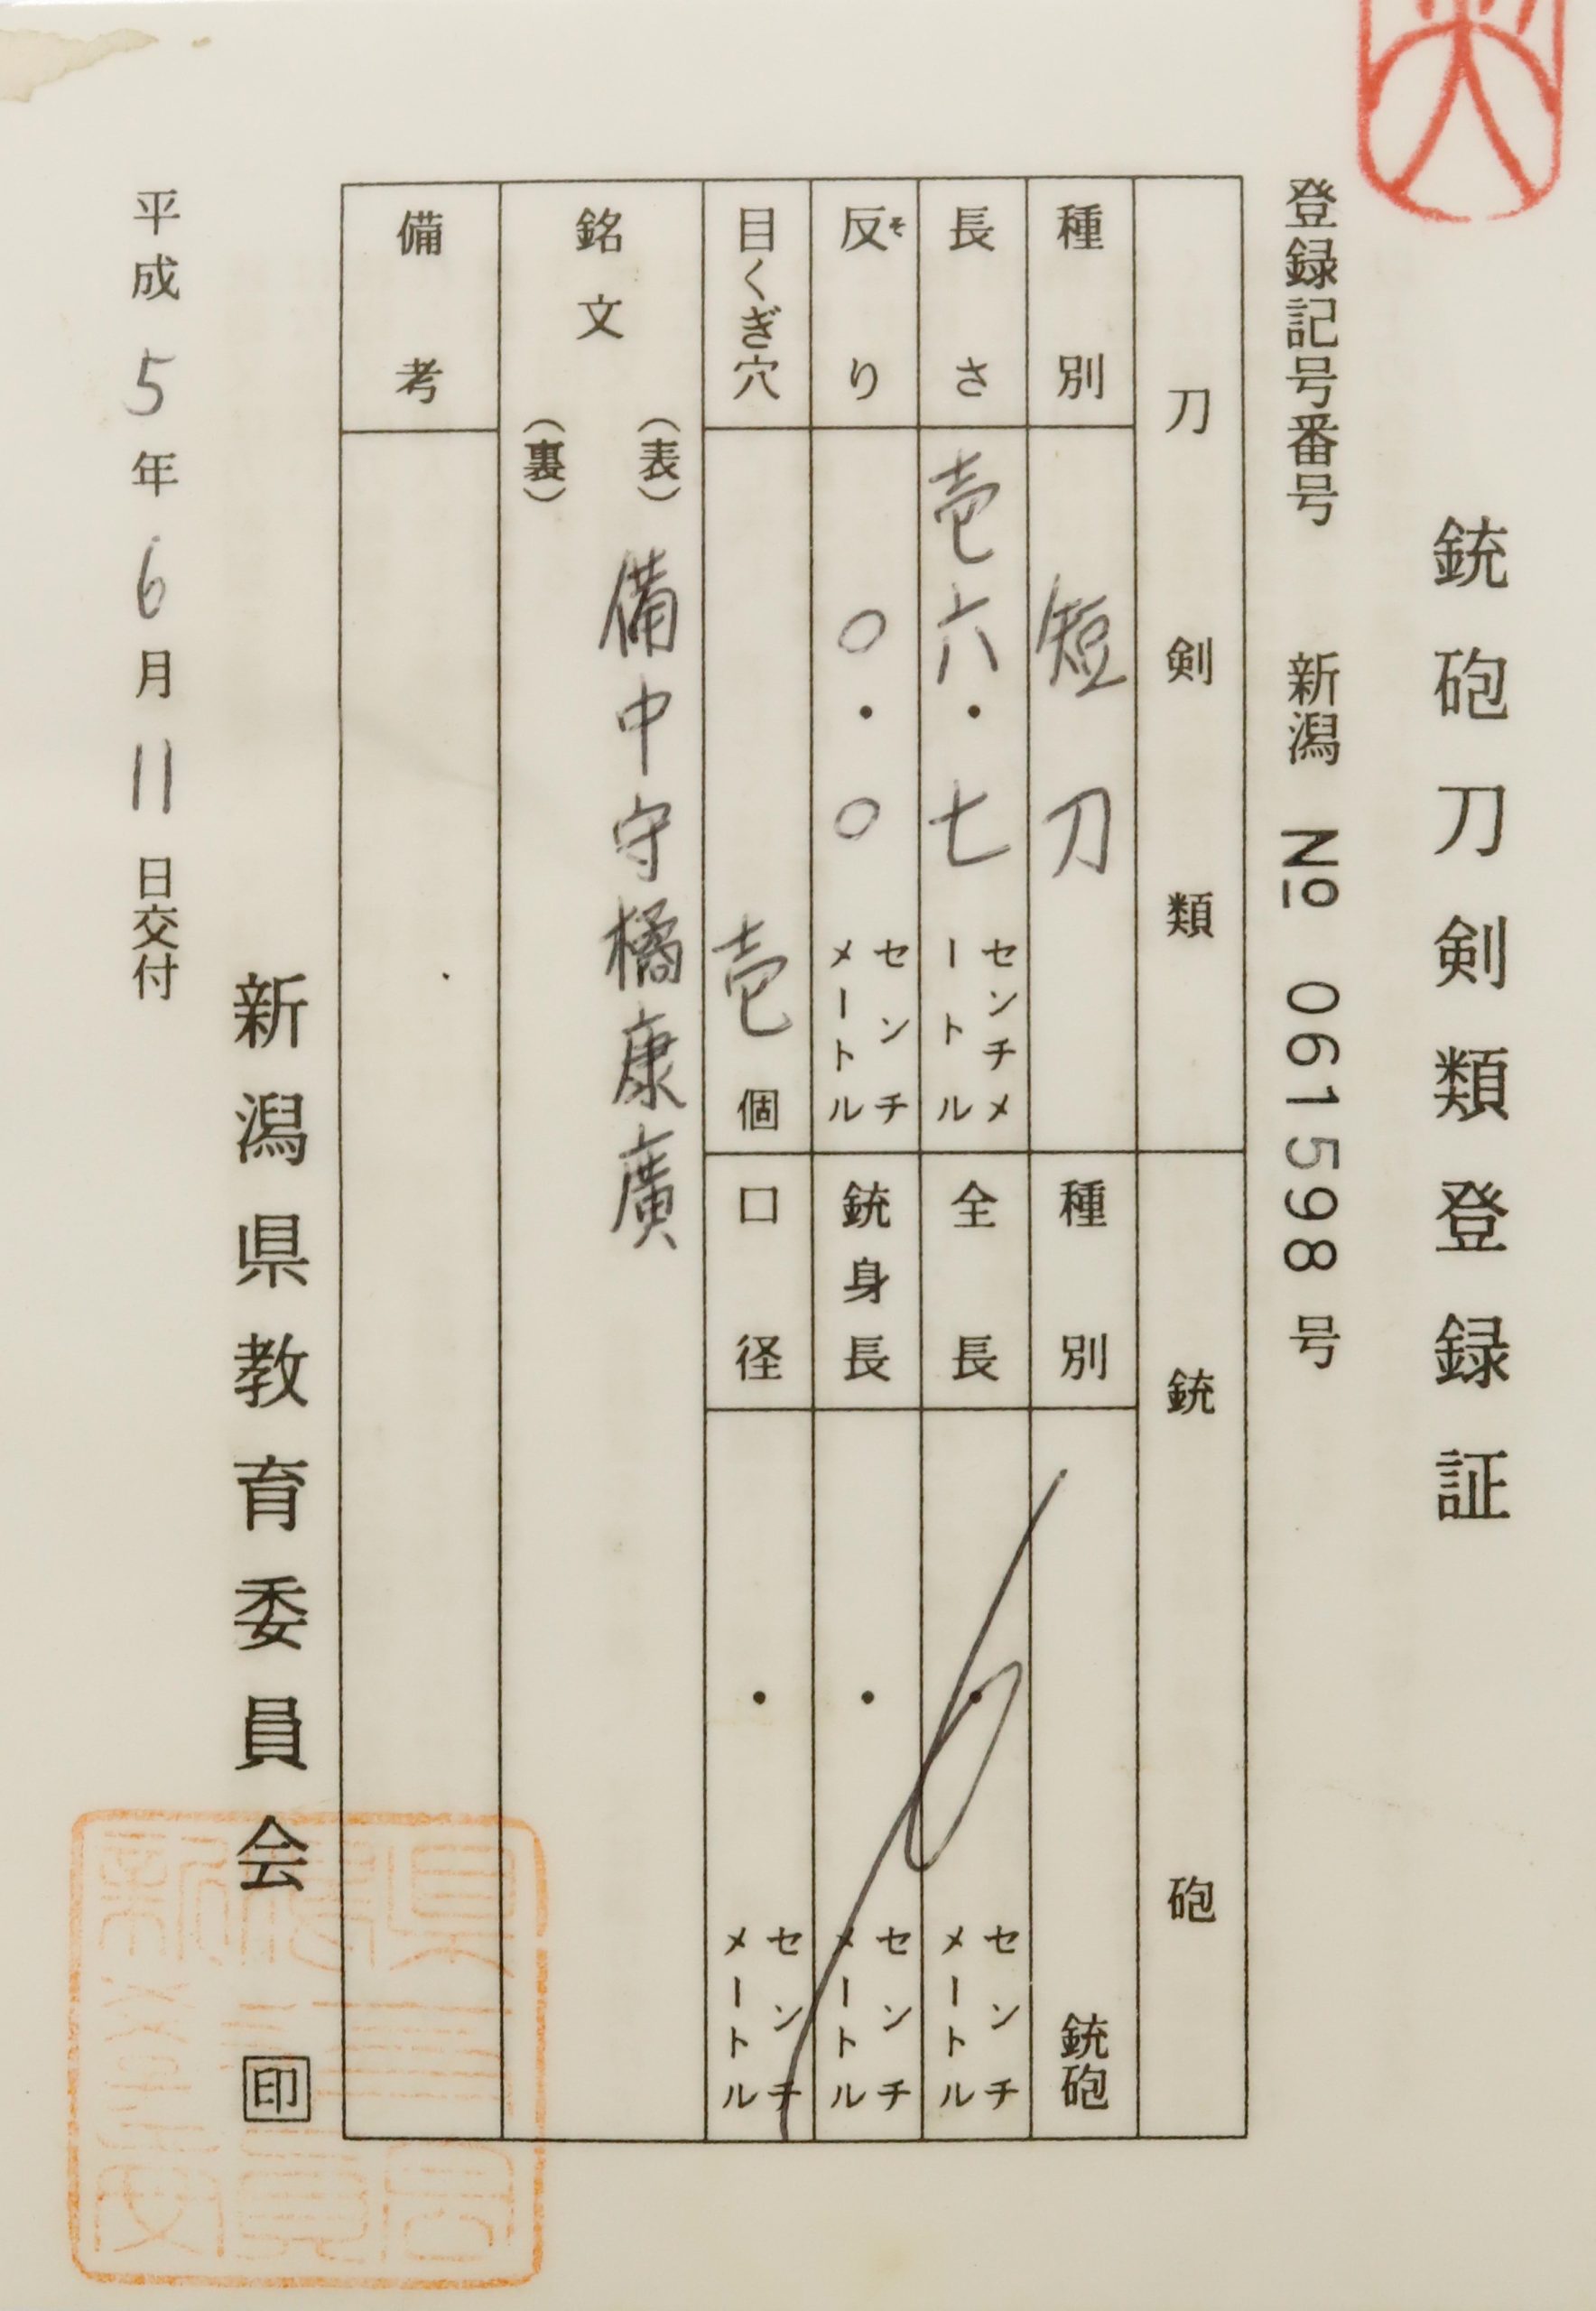 銃砲刀剣類登録証
登録記号番号 新潟 № 061598 号
刀剣類
銃砲
種別 短刀
長さ 壱六・七 センチメートル
反り そ ○・○ センチメートル
目くぎ穴 壱 個
種別 銃砲
全長 ・ センチメートル
銃身長 ・ センチメートル
口径 ・ センチメートル
銘文 (表) 備中守橘康廣
(裏)
備考
新潟県教育委員会 印
平成5年6月11日交付